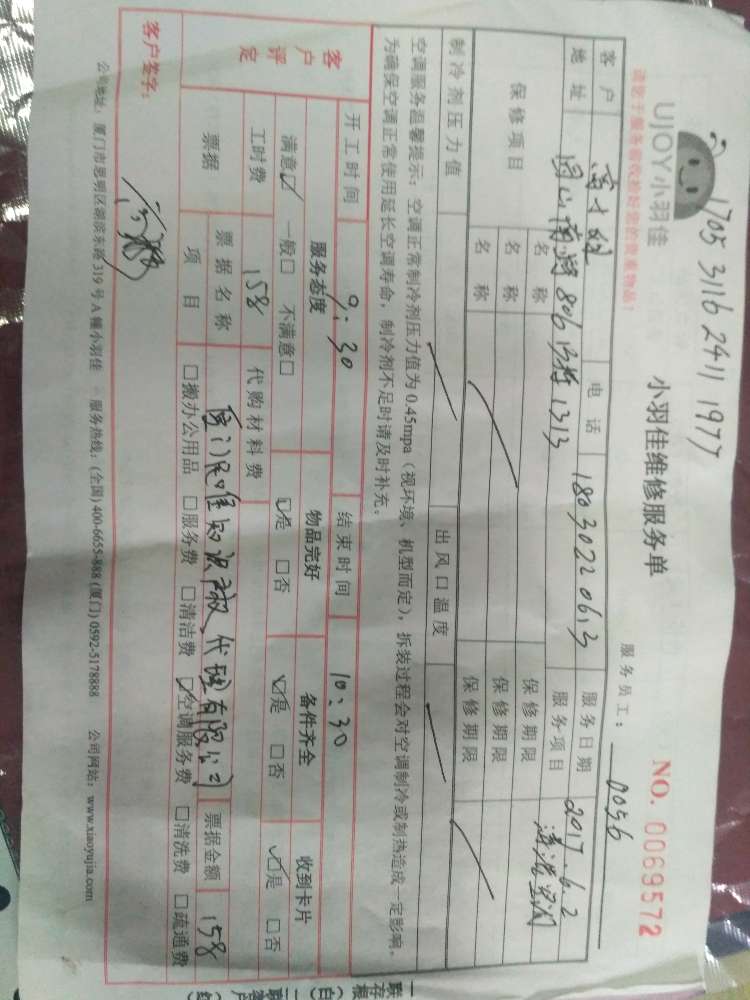 1705 3116 2411 1977
UJOY小羽佳
小羽佳维修服务单
NO. 0069572
服务员工: 0056
客户 电话 18030220613 服务日期 2017.6.2
地址 806 1313 服务项目
保修项目 名称 保修期限
名称 保修期限
名称 保修期限
制冷剂压力值 出风口温度
空调服务温馨提示: 空调正常制冷剂压力值为 0.45mpa (视环境、机型而定), 拆装过程会对空调制冷或制热造成一定影响。
为确保空调正常使用延长空调寿命, 制冷剂不足时请及时补充。
开工时间 9:30 结束时间 10:30
客户评定 服务态度 物品完好 备件齐全 收到卡片
满意☑ 一般□ 不满意□ ☑是 □否 ☑是 □否 ☑是 □否
工时费 158 代购材料费
票据 票据名称 知识产权代理有限公司 票据金额 158
项目 □搬办公用品 □服务费 □清洁费 ☑空调服务费 □清洗费 □疏通费
客户签字:
公司地址: 厦门市思明区湖滨东路 319 号 A 幢小羽佳 服务热线: (全国) 400-6655-888 (厦门) 0592-5178888 公司网站: www.xiaoyujia.com